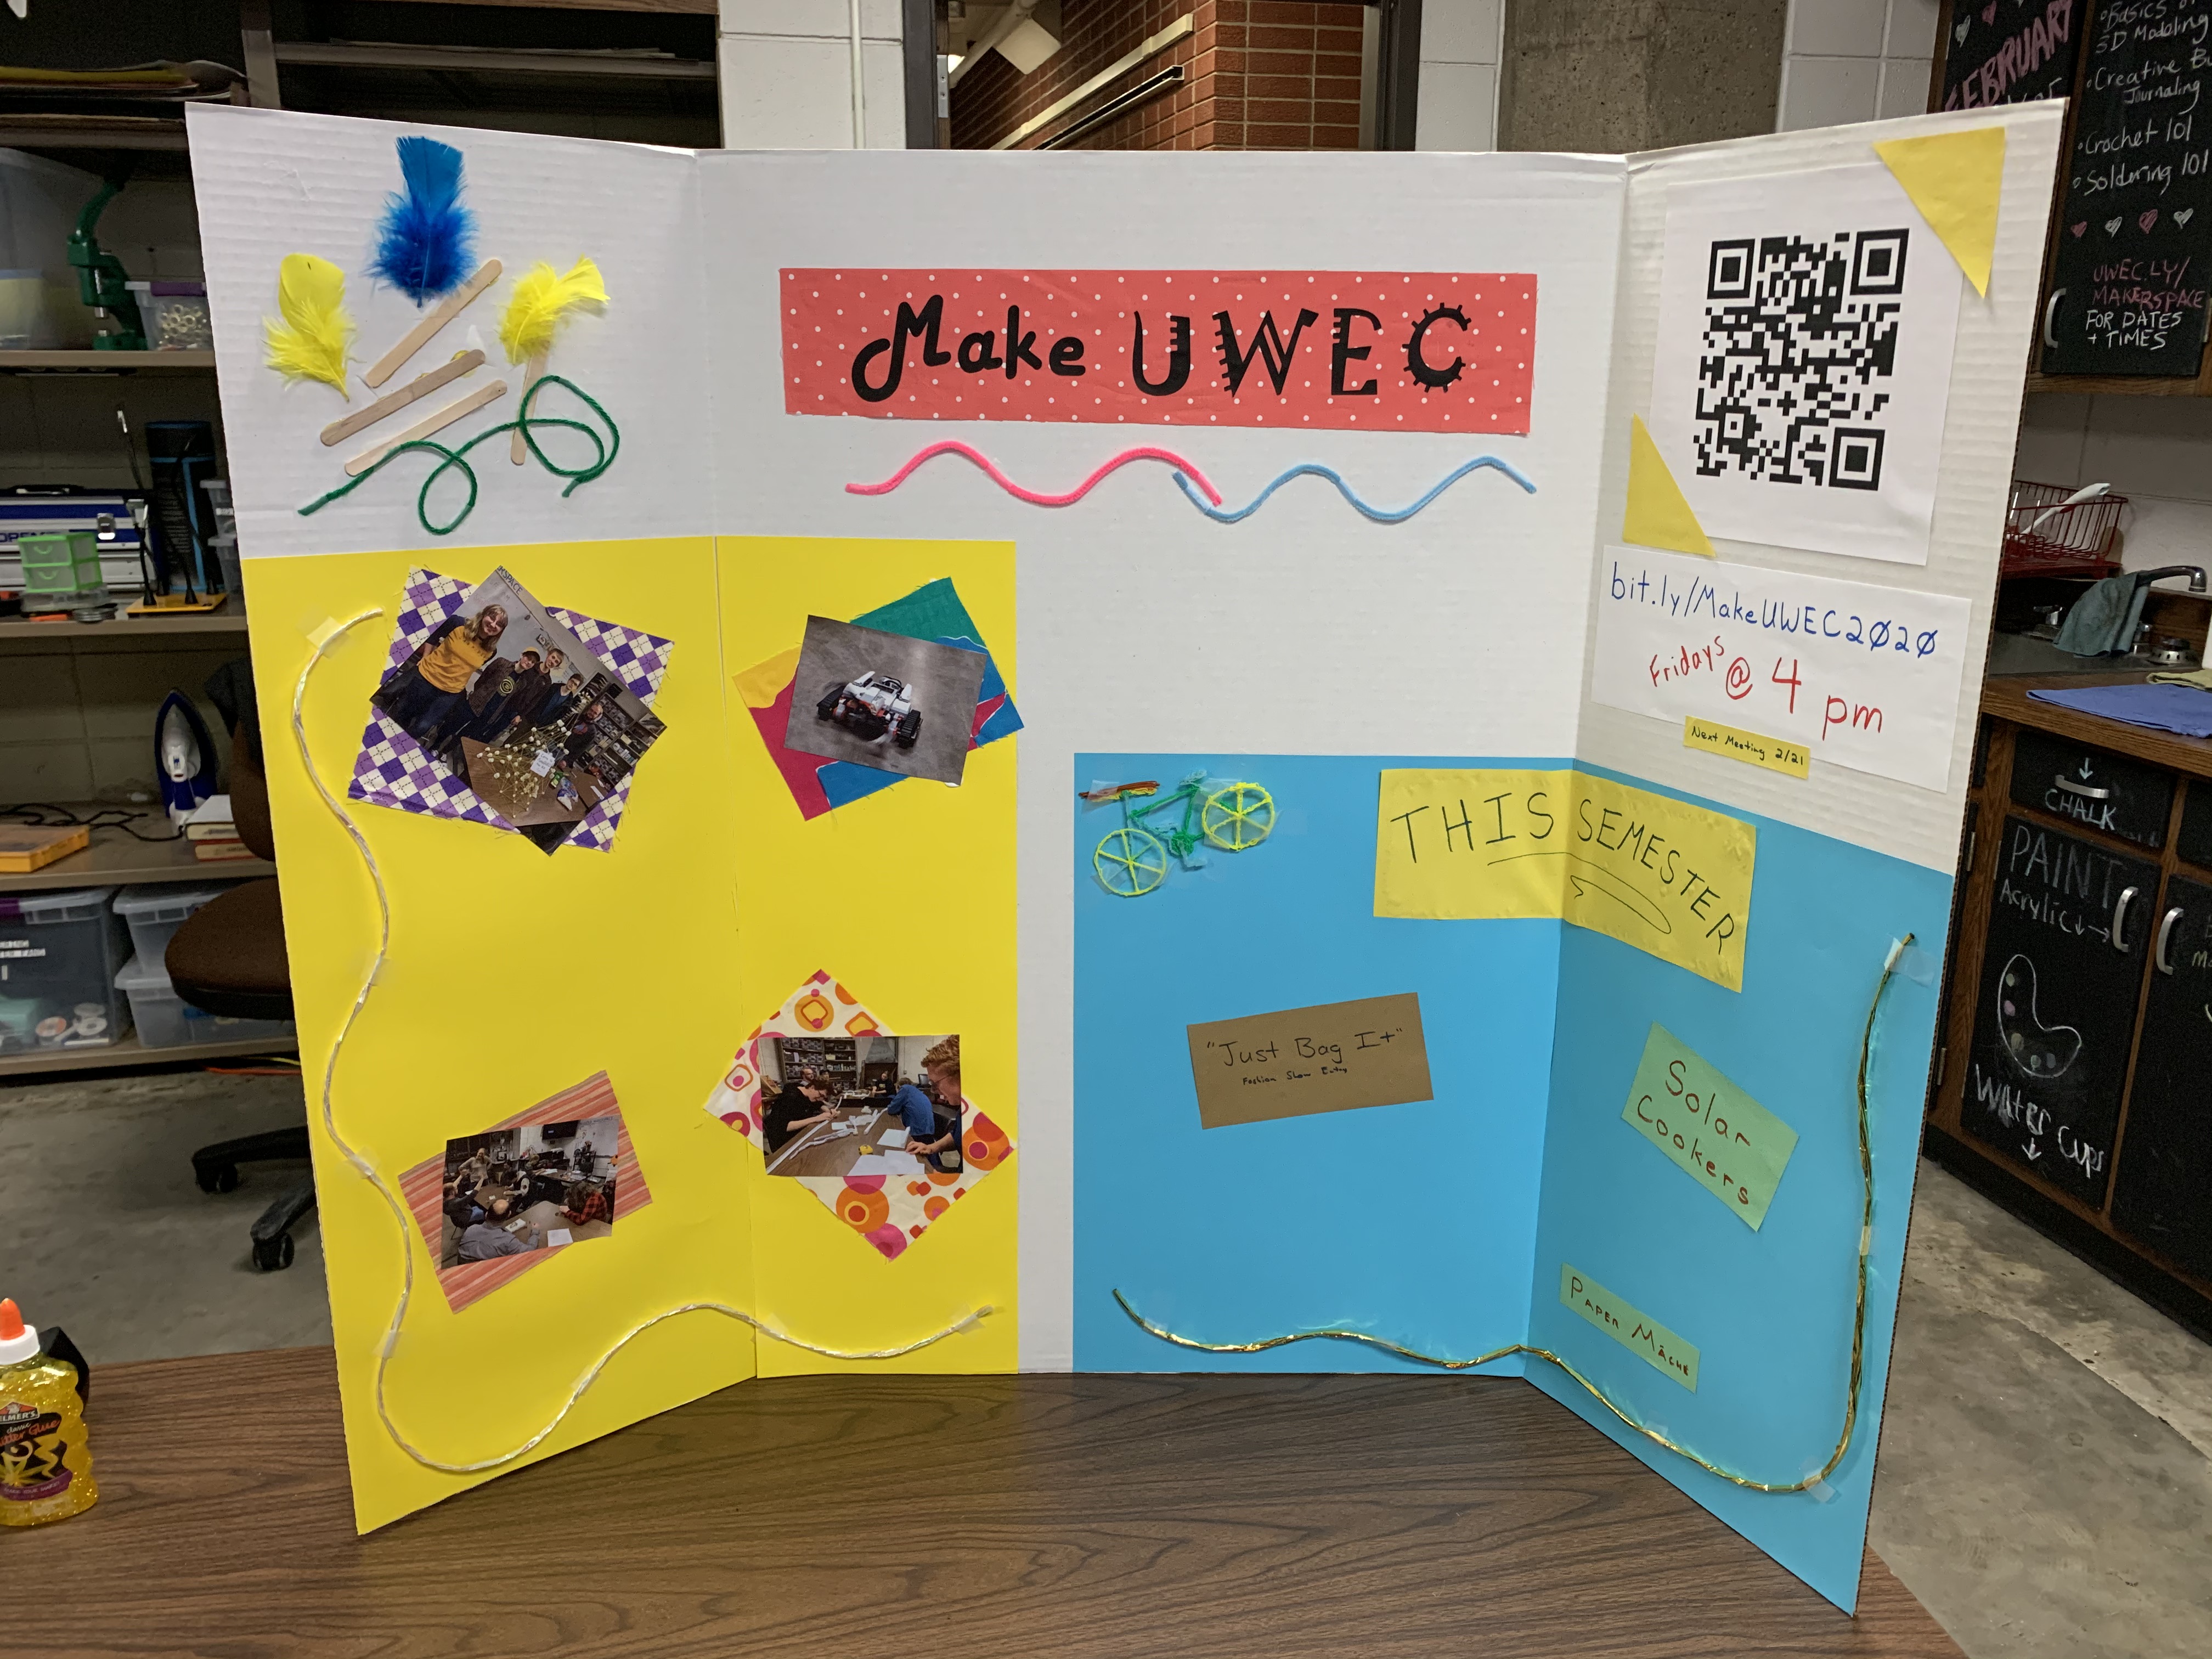 Make UWEC
bit.ly/MakeUWEC2020
Fridays @ 4 pm
Next Meeting 2/21
THIS SEMESTER
"Just Bag It"
Fashion Show Entry
Solar
Cookers
PAPER MÂCHÉ
FEBRUARY
3D Modeling
Creative
Journaling
Crochet 101
Soldering 101
UWEC.LY/
MAKERSPACE
FOR DATES
+ TIMES
CHALK
PAINT
Acrylic
WATER CUPS
ELMER'S
classic